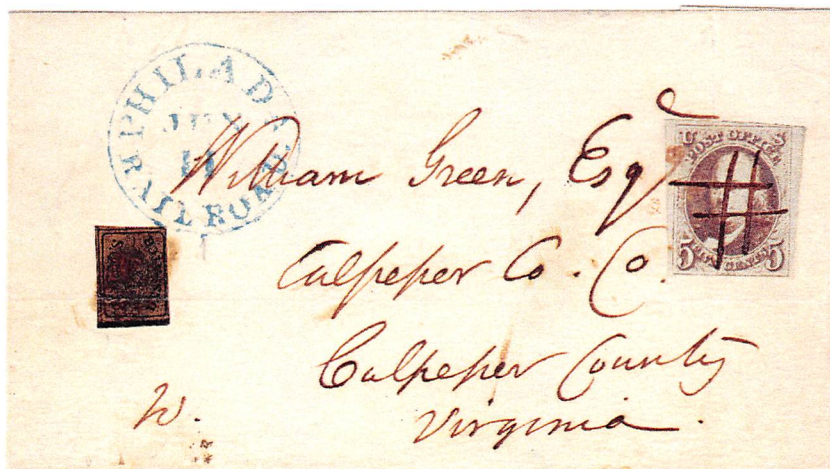 PHILADA
RAILROAD.
11
William Green, Esqr
Culpeper Co. Co.
Culpeper County
Virginia.
W.
U S
POST OFFICE
5 FIVE CENTS 5